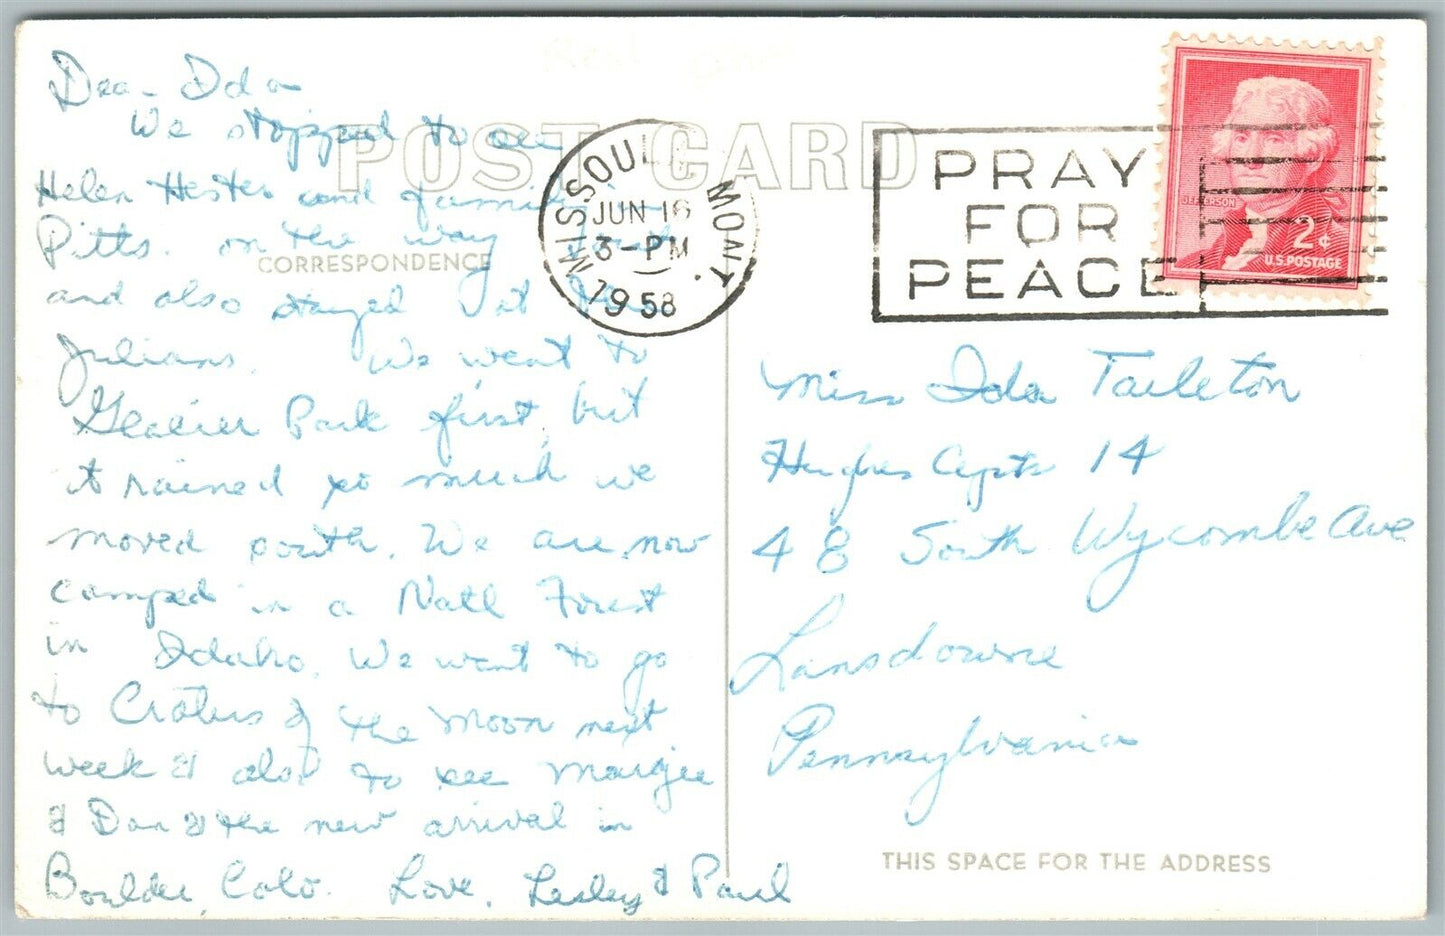 Dear Ida
We stopped to see
Helen Hester and family in
Pitts. on the way out
and also stayed at the
Julians. We went to
Glacier Park first, but
it rained so much we
moved south. We are now
camped in a Natl Forest
in Idaho. We want to go
to Craters of the Moon next
week & also to see Margie
& Don & the new arrival in
Boulder, Colo. Love, Lesley & Paul
POST CARD
CORRESPONDENCE
MISSOULA MONT.
JUN 16
3-PM
1958
PRAY
FOR
PEACE
JEFFERSON
2¢
U.S. POSTAGE
Miss Ida Tarleton
Hughes Apts 14
48 South Wycombe Ave
Lansdowne
Pennsylvania
THIS SPACE FOR THE ADDRESS